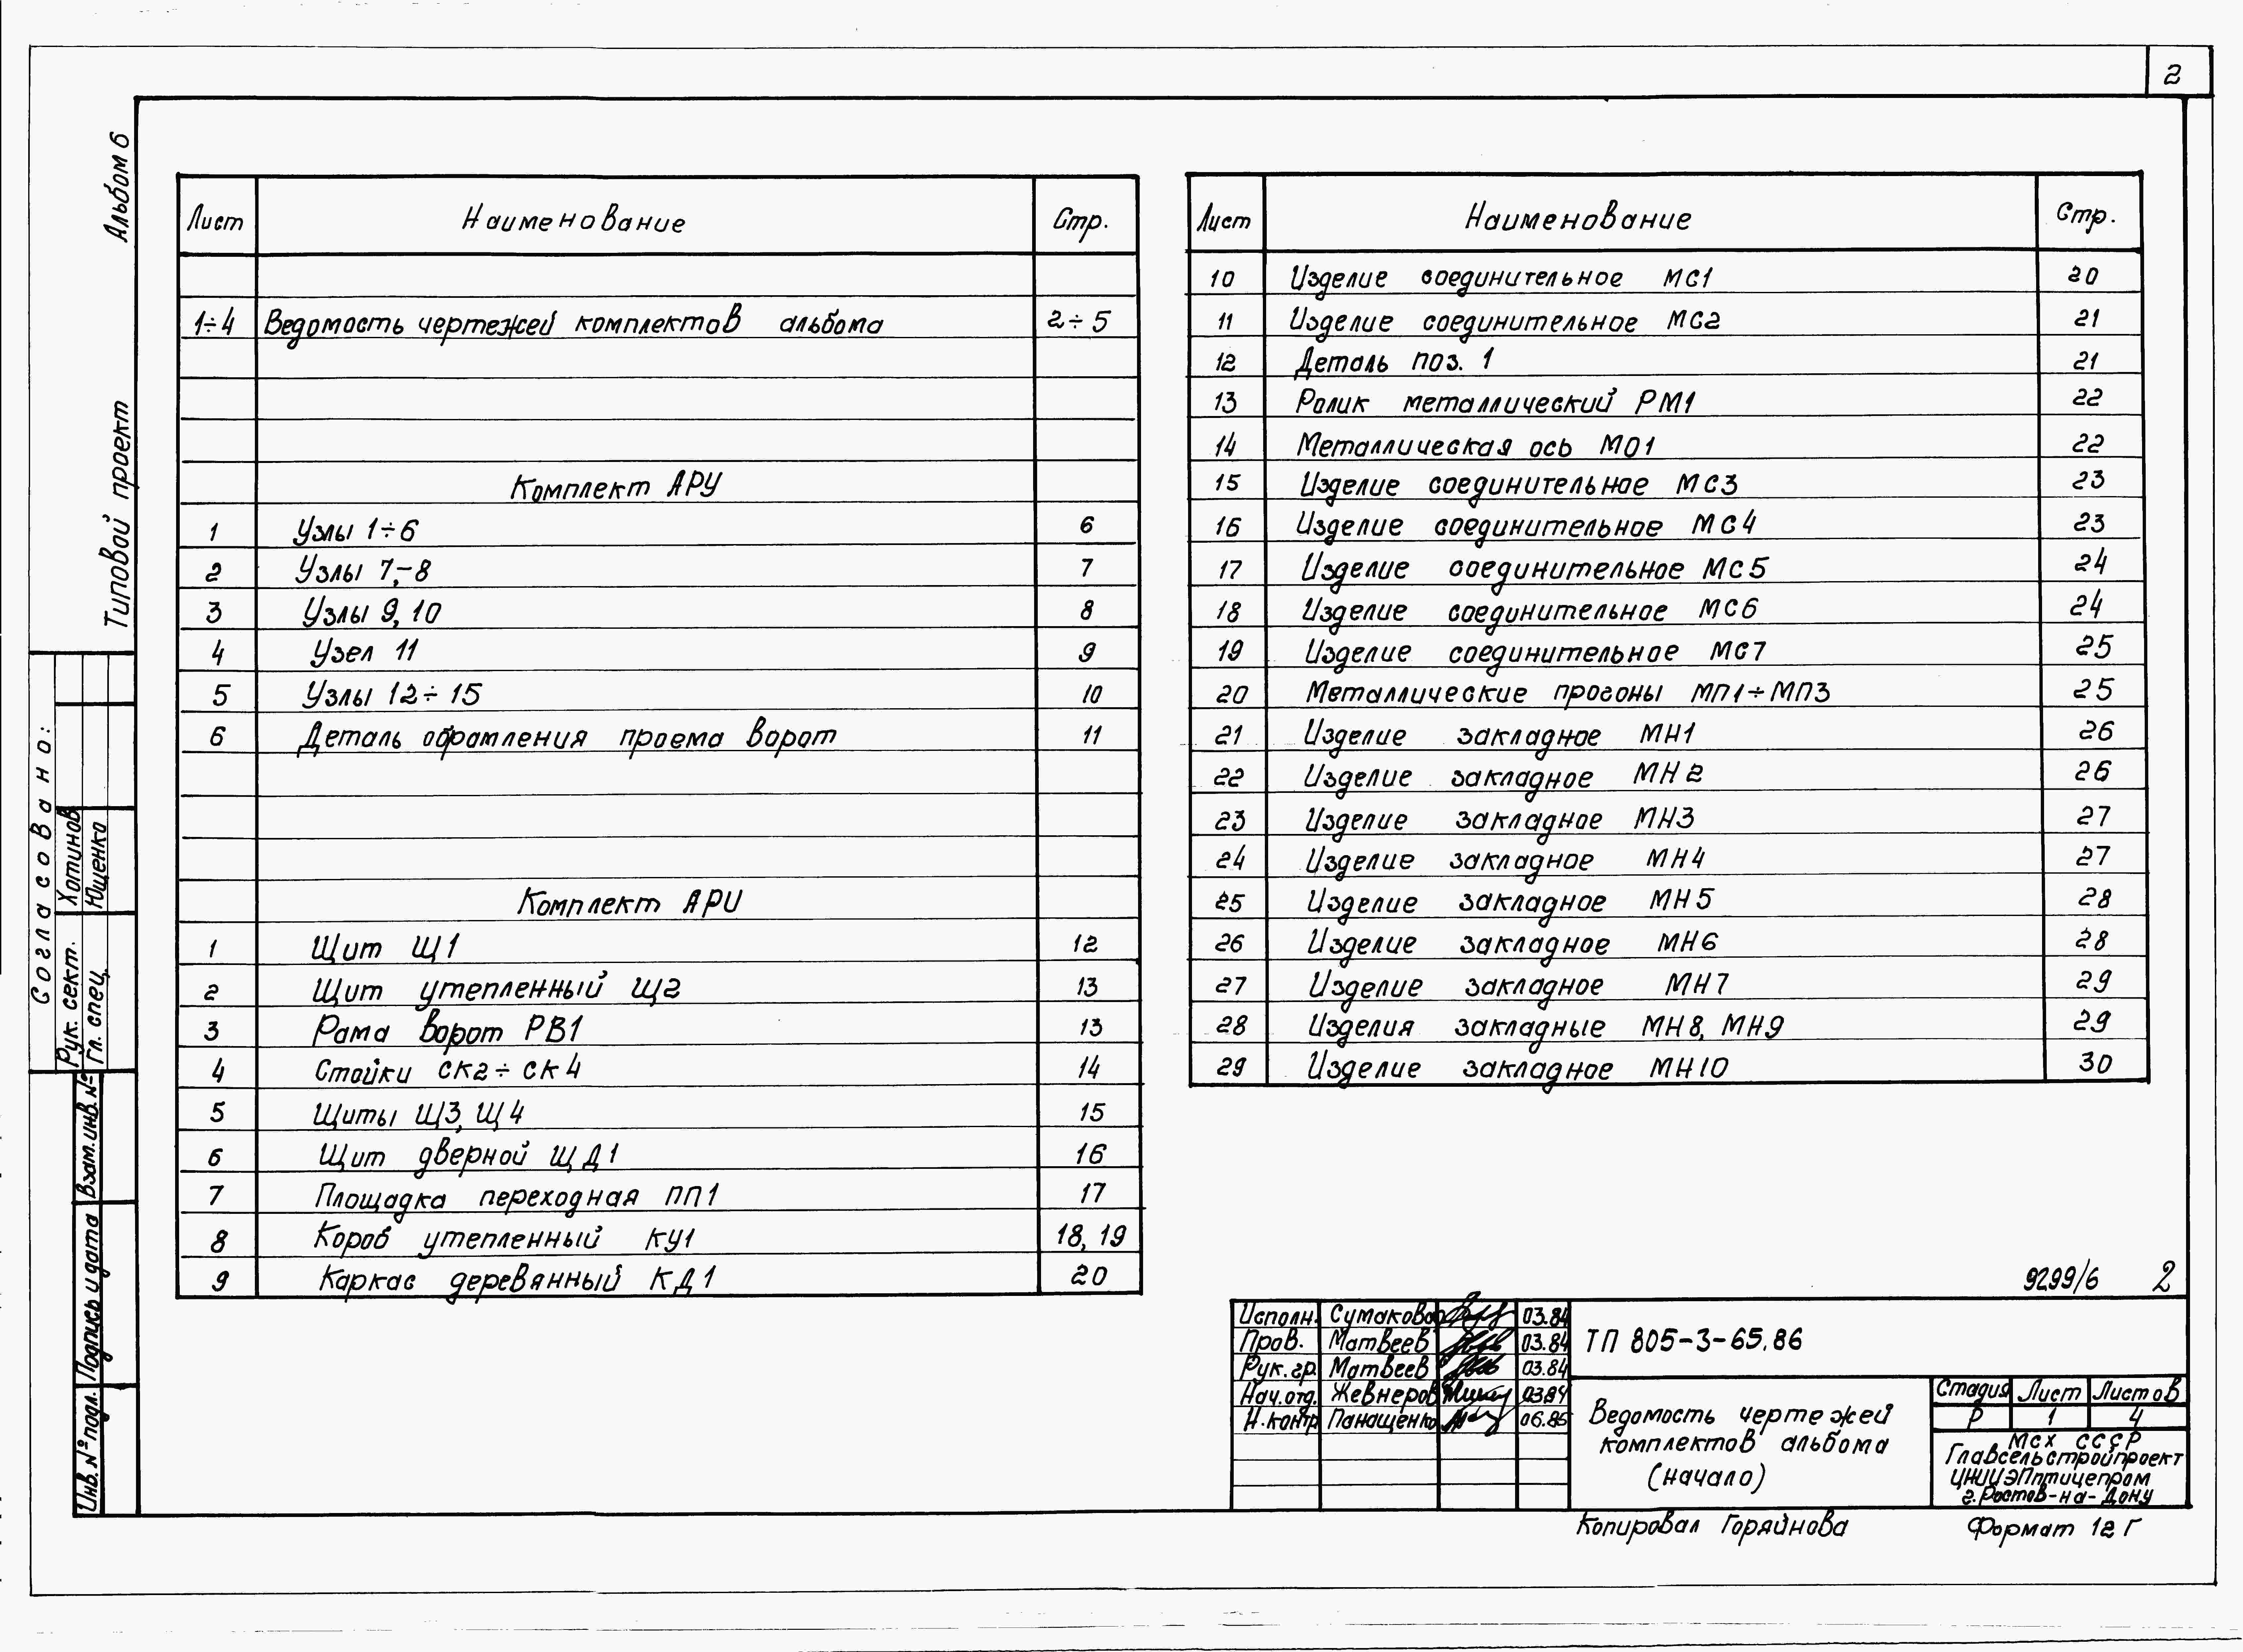 2
Альбом 6
Типовой проект
Лист Наименование Стр.
1÷4 Ведомость чертежей комплектов альбома 2÷5
Комплект АРУ
1 Узлы 1÷6 6
2 Узлы 7,-8 7
3 Узлы 9, 10 8
4 Узел 11 9
5 Узлы 12÷15 10
6 Деталь обрамления проема ворот 11
Комплект АРИ
1 Щит Щ1 12
2 Щит утепленный Щ2 13
3 Рама ворот РВ1 13
4 Стойки СК2÷СК4 14
5 Щиты Щ3, Щ4 15
6 Щит дверной ЩД1 16
7 Площадка переходная ПП1 17
8 Короб утепленный КУ1 18, 19
9 Каркас деревянный КД1 20
Лист Наименование Стр.
10 Изделие соединительное МС1 20
11 Изделие соединительное МС2 21
12 Деталь поз. 1 21
13 Ролик металлический РМ1 22
14 Металлическая ось МО1 22
15 Изделие соединительное МС3 23
16 Изделие соединительное МС4 23
17 Изделие соединительное МС5 24
18 Изделие соединительное МС6 24
19 Изделие соединительное МС7 25
20 Металлические прогоны МП1÷МП3 25
21 Изделие закладное МН1 26
22 Изделие закладное МН2 26
23 Изделие закладное МН3 27
24 Изделие закладное МН4 27
25 Изделие закладное МН5 28
26 Изделие закладное МН6 28
27 Изделие закладное МН7 29
28 Изделия закладные МН8, МН9 29
29 Изделие закладное МН10 30
Согласовано:
Рук. сект. Хотинов
Гл. спец. Ющенко
Взам. инв. №
Подпись и дата
Инв. № подл.
9299/6 2
Исполн. Сумакова 03.84
Пров. Матвеев 03.84
Рук. гр. Матвеев 03.84
Нач. отд. Жевнеров 03.84
Н. контр. Панащенко 06.86
ТП 805-3-65.86
Ведомость чертежей
комплектов альбома
(начало)
Стадия Лист Листов
Р 1 4
Мсх СССР
Главсельстройпроект
ЦНИИЭПптицепром
г. Ростов-на-Дону
Копировал Горяйнова Формат 12Г